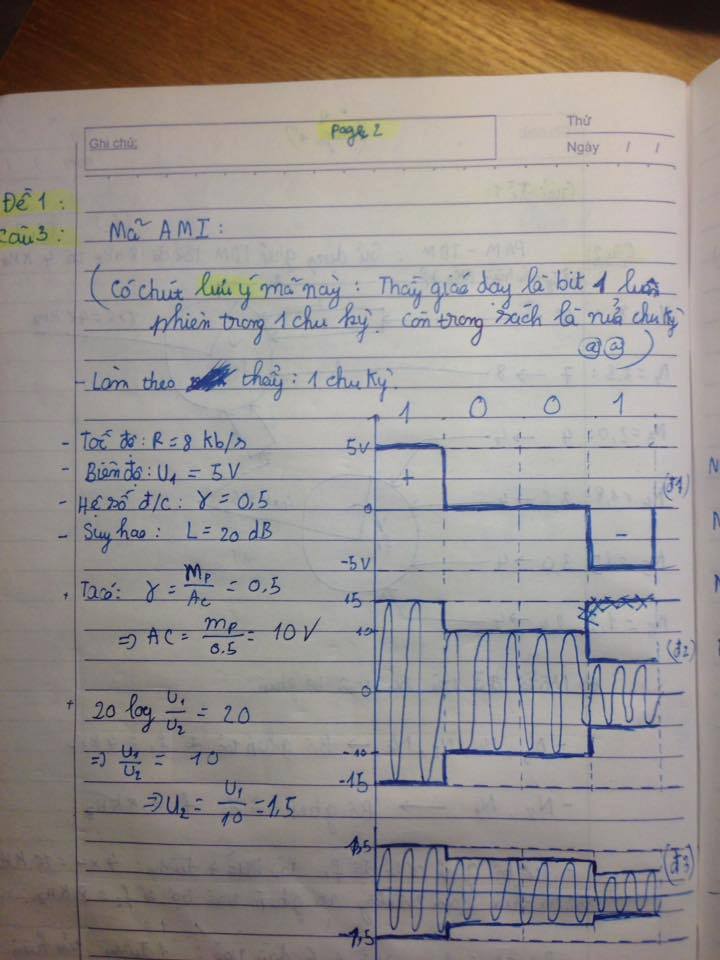 Page 2
Ghi chú:
Thứ
Ngày / /
Đề 1:
Câu 3: Mã AMI:
(Có chút lưu ý mã này: Thầy giáo dạy là bit 1 luân
phiên trong 1 chu kỳ. Còn trong sách là nửa chu kỳ
- Làm theo thầy: 1 chu kỳ.
1 0 0 1
- Tốc độ: R = 8 kb/s
- Biên độ: U1 = 5 V
- Hệ số đ/c: γ = 0,5
- Suy hao: L = 20 dB
5V
+
0
-
-5V
(đ1)
+ Ta có: γ = mp/Ac = 0.5
=> AC = mp/0.5 = 10 V
15
10
0
-10
-15
(đ2)
+ 20 log U1/U2 = 20
=> U1/U2 = 10
=> U2 = U1/10 = 1,5
1,5
-1,5
(đ3)